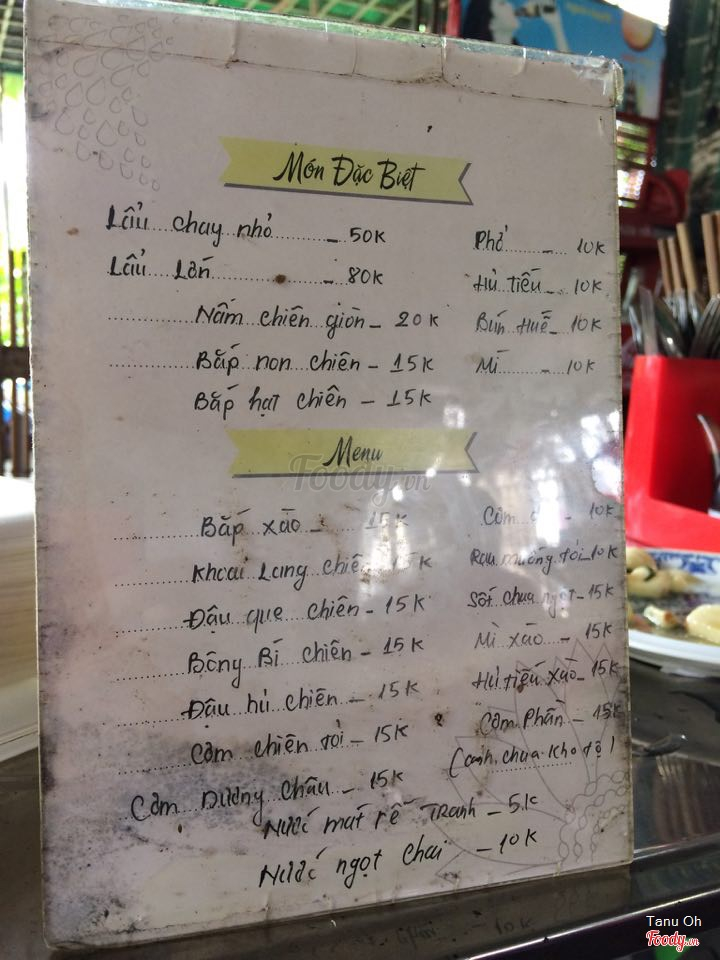 Món Đặc Biệt
Lẩu chay nhỏ - 50K
Lẩu Lớn - 80K
Nấm chiên giòn - 20K
Bắp non chiên - 15K
Bắp hạt chiên - 15K
Phở - 10K
Hủ tiếu - 10K
Bún Huế - 10K
Mì - 10K
Menu
Bắp xào - 15K
Khoai Lang chiên 15K
Đậu que chiên - 15K
Bông Bí chiên - 15K
Đậu hủ chiên - 15K
Cơm chiên tỏi - 15K
Cơm Dương Châu - 15K
Cơm - 10K
Rau muống tỏi - 10K
Sốt chua ngọt - 15K
Mì xào - 15K
Hủ tiếu xào - 15K
Cơm Phần - 15K
(canh chua - kho tộ)
Nước mát rể Tranh - 5K
Nước ngọt chai - 10K
Foody.vn
Tanu Oh
Foody.vn